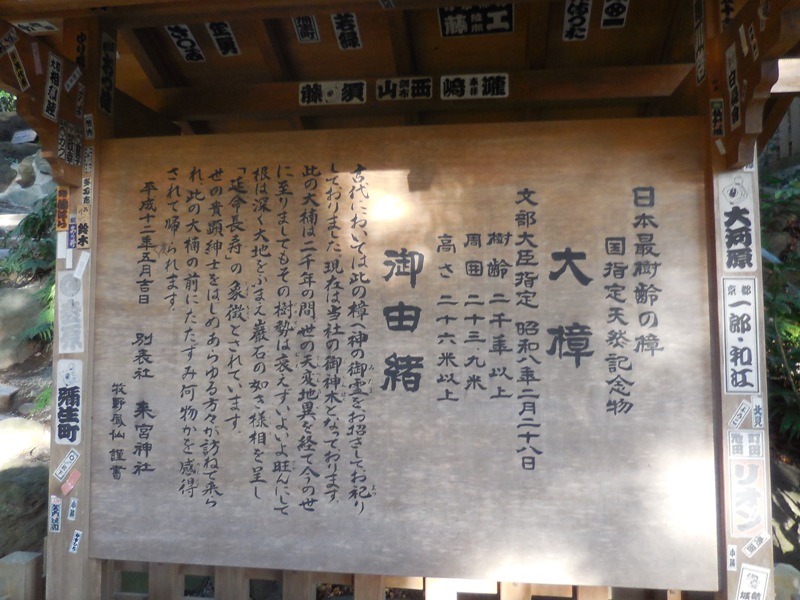 日本最樹齢の樟
国指定天然記念物
大樟
文部大臣指定 昭和八年二月二十八日
樹齢 二千年以上
周囲 二十三、九米
高さ 二十六米以上
御由緒
古代においては此の樟へ神の御霊をお招きしてお祀り
しておりました。現在は当社の御神木となっております。
此の大楠は二千年の間、世の天変地異を経て今の世
に至りましてもその樹勢は衰えずいよいよ旺んにして
根は深く大地をふまえ巌石の如き様相を呈し
「延命長寿」の象徴とされています
世の貴顕紳士をはじめあらゆる方々が訪ねて来ら
れ、此の大楠の前にたたずみ何物かを感得
されて帰られます。
平成十二年五月吉日 別表社 来宮神社
牧野 仙 謹書
藤須
山西
崎瀧
藤工
鈴木
弥生町
大河原
京都
一郎・和江
リオン